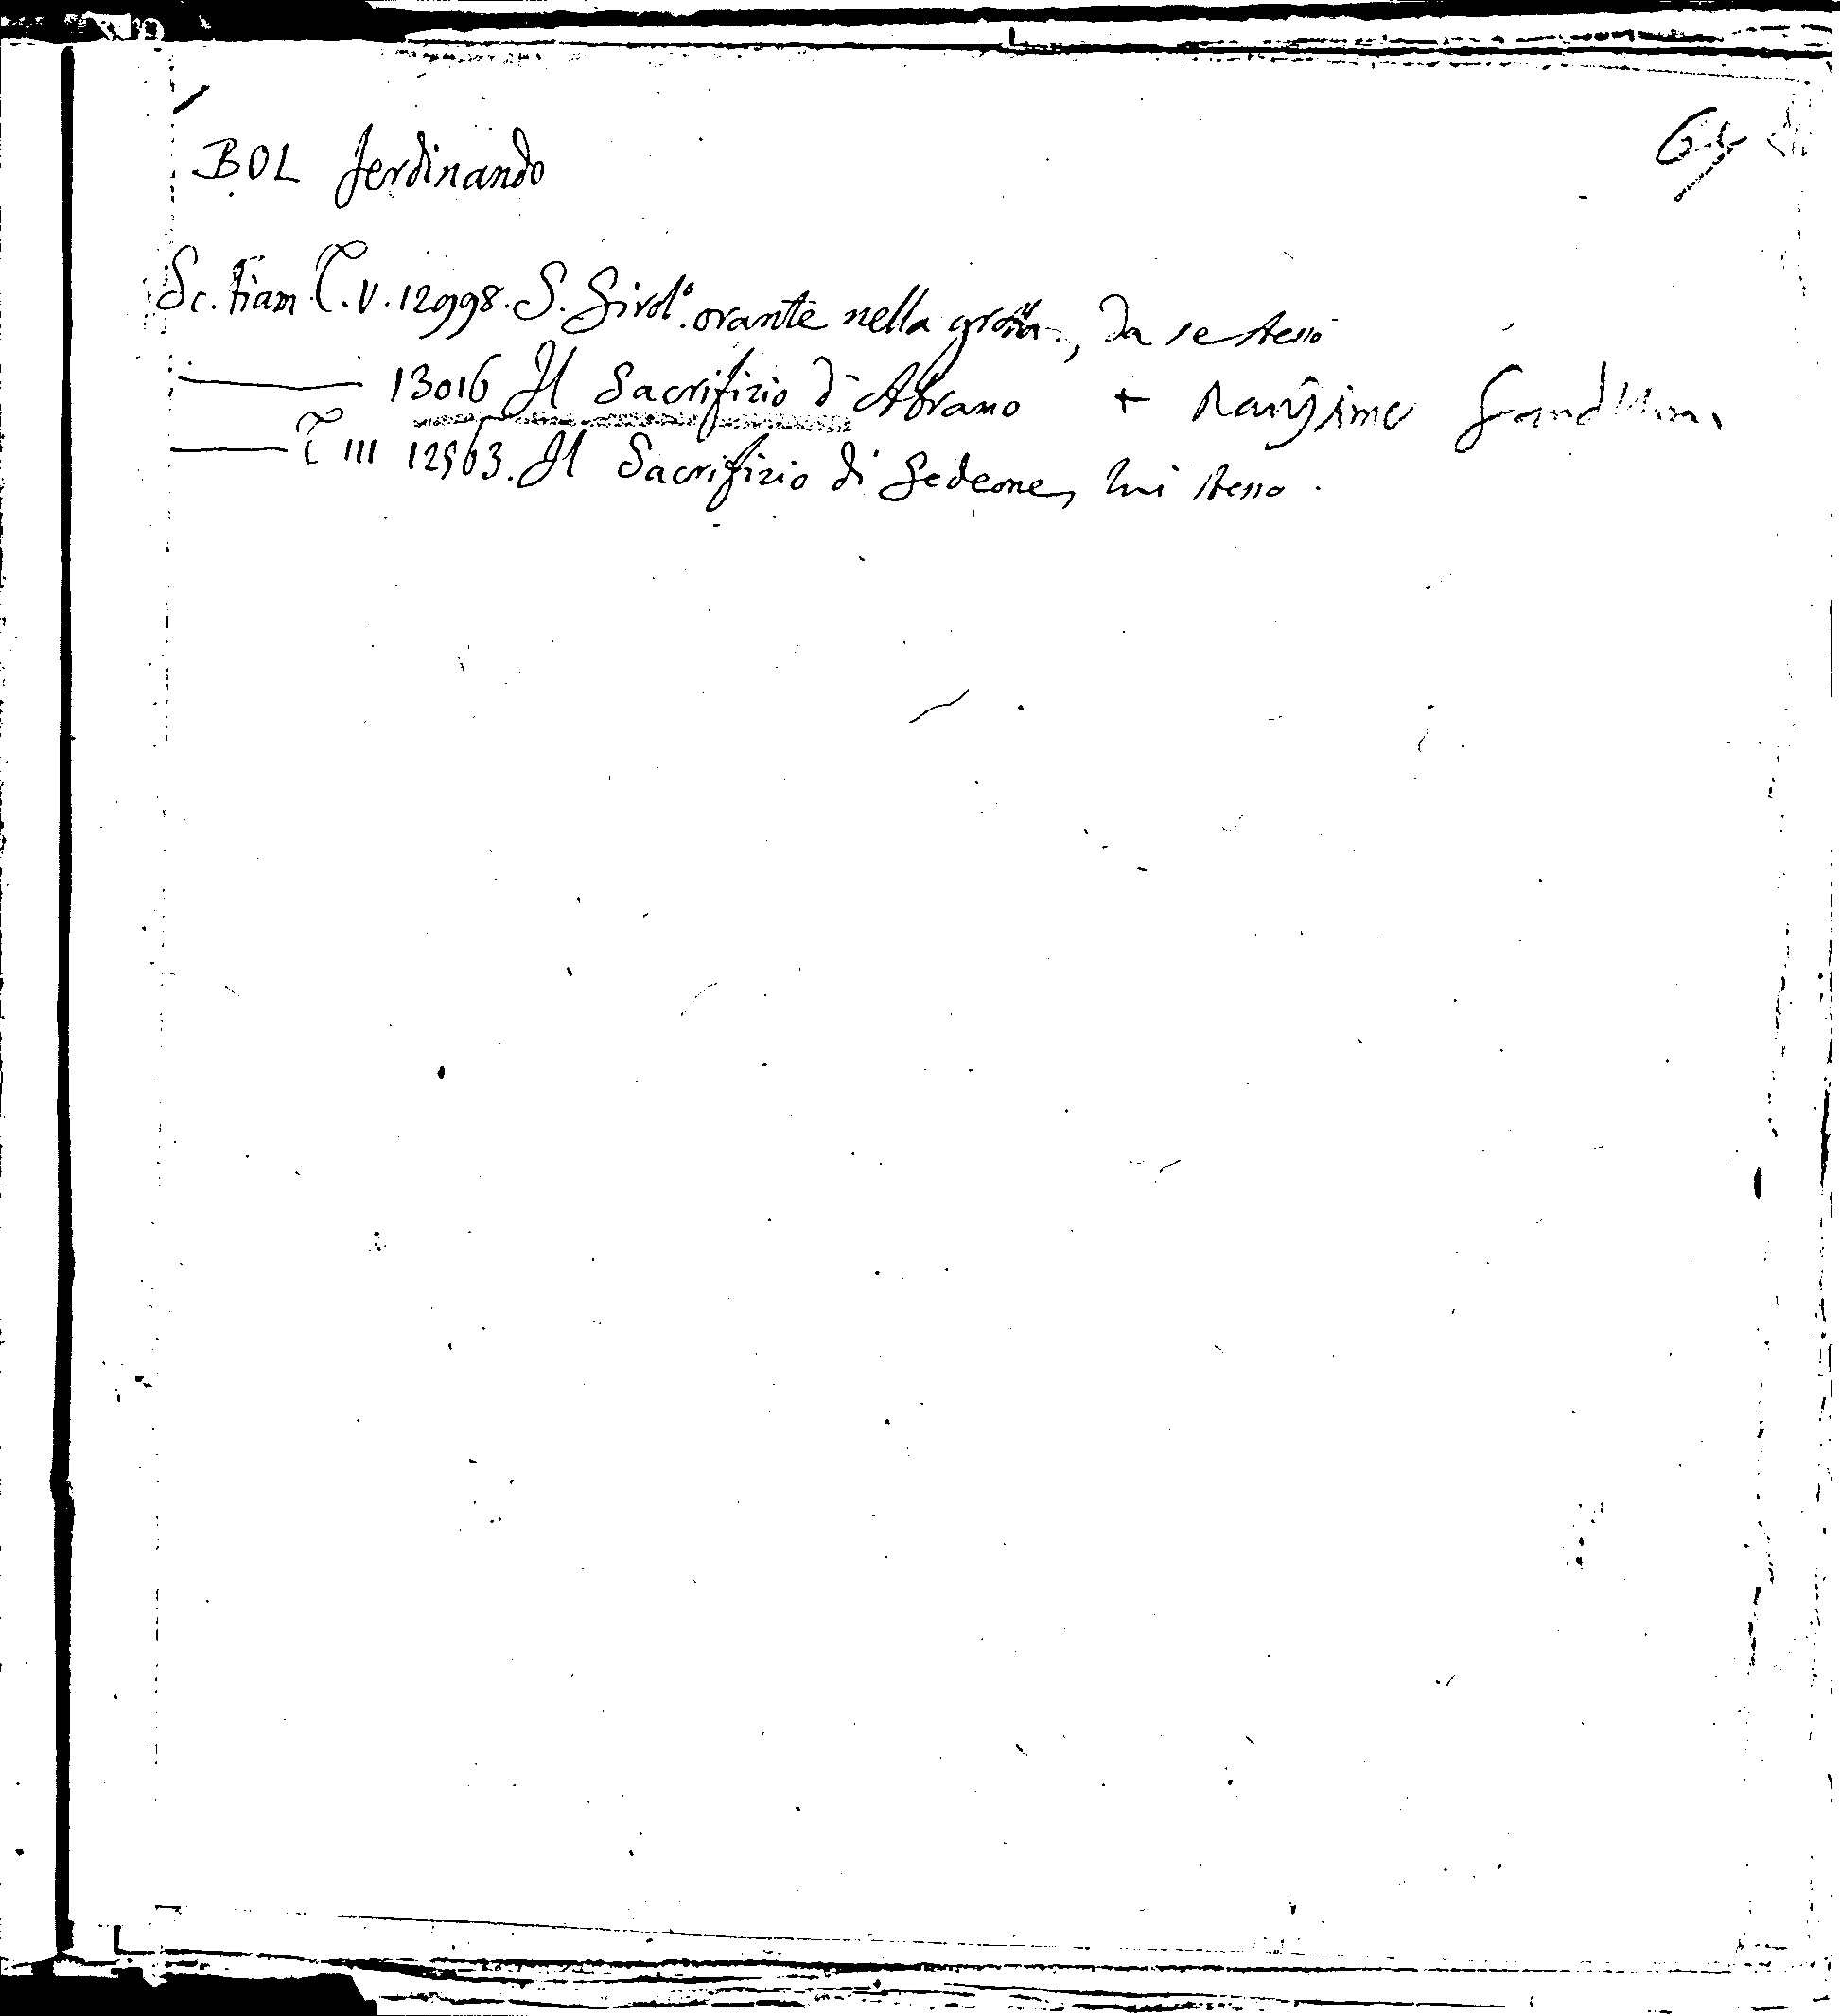 BOL Ferdinando
Sc. fiam. T. V. 12998. S. Girolº. orante nella grotta, da se stesso
13016 Il Sacrifizio d'Abramo +
T III 12963. Il Sacrifizio di Gedeone, lui stesso.